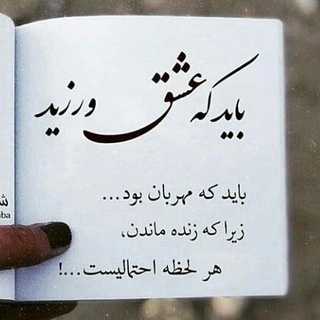 باید که عشق ورزید
باید که مهربان بود...
زیرا که زنده ماندن،
هر لحظه احتمالیست...!